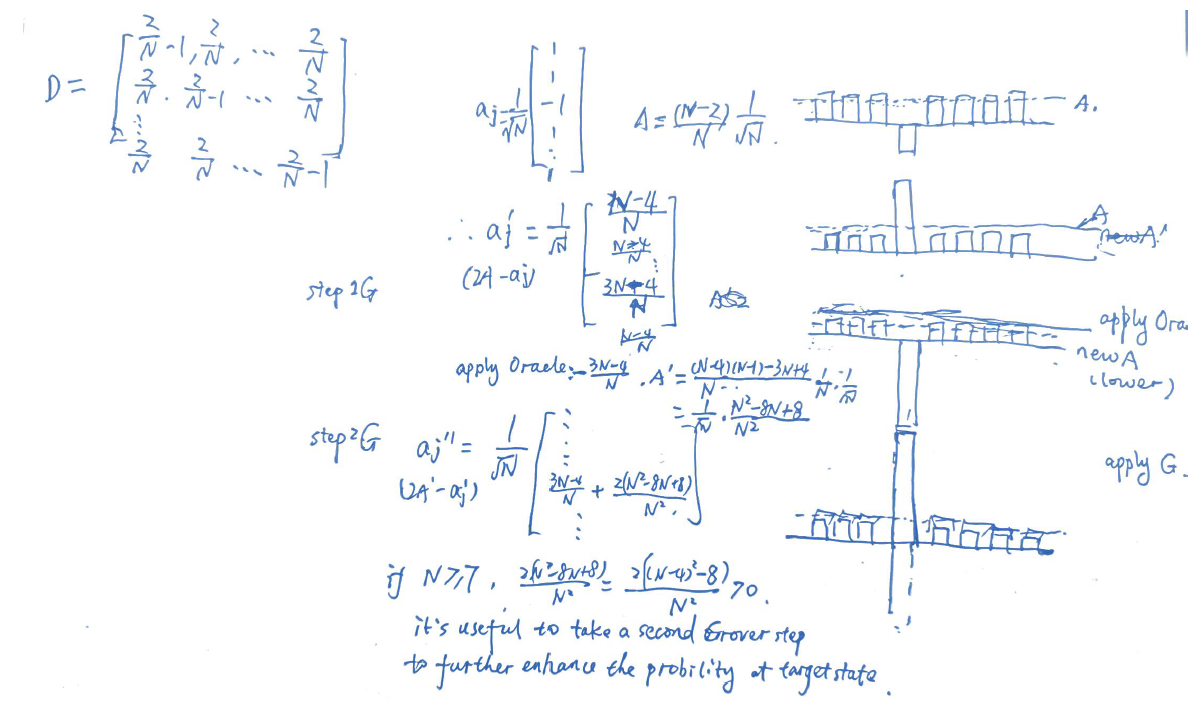 D = [ 2/N -1, 2/N, ... 2/N
2/N . 2/N -1 ... 2/N
⋮
2/N 2/N ... 2/N -1 ]
aj = 1/√N [ 1 1 -1 ⋮ 1 ]
A = (N-2)/N 1/√N .
A.
∴ aj' = 1/√N [ N-4/N N-4/N ⋮ 3N-4/N N-4/N ]
(2A - aj)
step 1G
A
new A'
apply Ora
new A
(lower)
apply Oracle: - 3N-4/N . A' = (N-4)(N-1)-3N+4/N ... 1/N . 1/√N
= 1/√N . N²-8N+8/N²
step 2G
aj'' = 1/√N [ ⋮ 3N-4/N + 2(N²-8N+8)/N² . ⋮ ]
(2A' - aj')
apply G.
if N≥7, 2(N²-8N+8)/N² = 2((N-4)²-8)/N² >0.
it's useful to take a second Grover step
to further enhance the probility at target state.